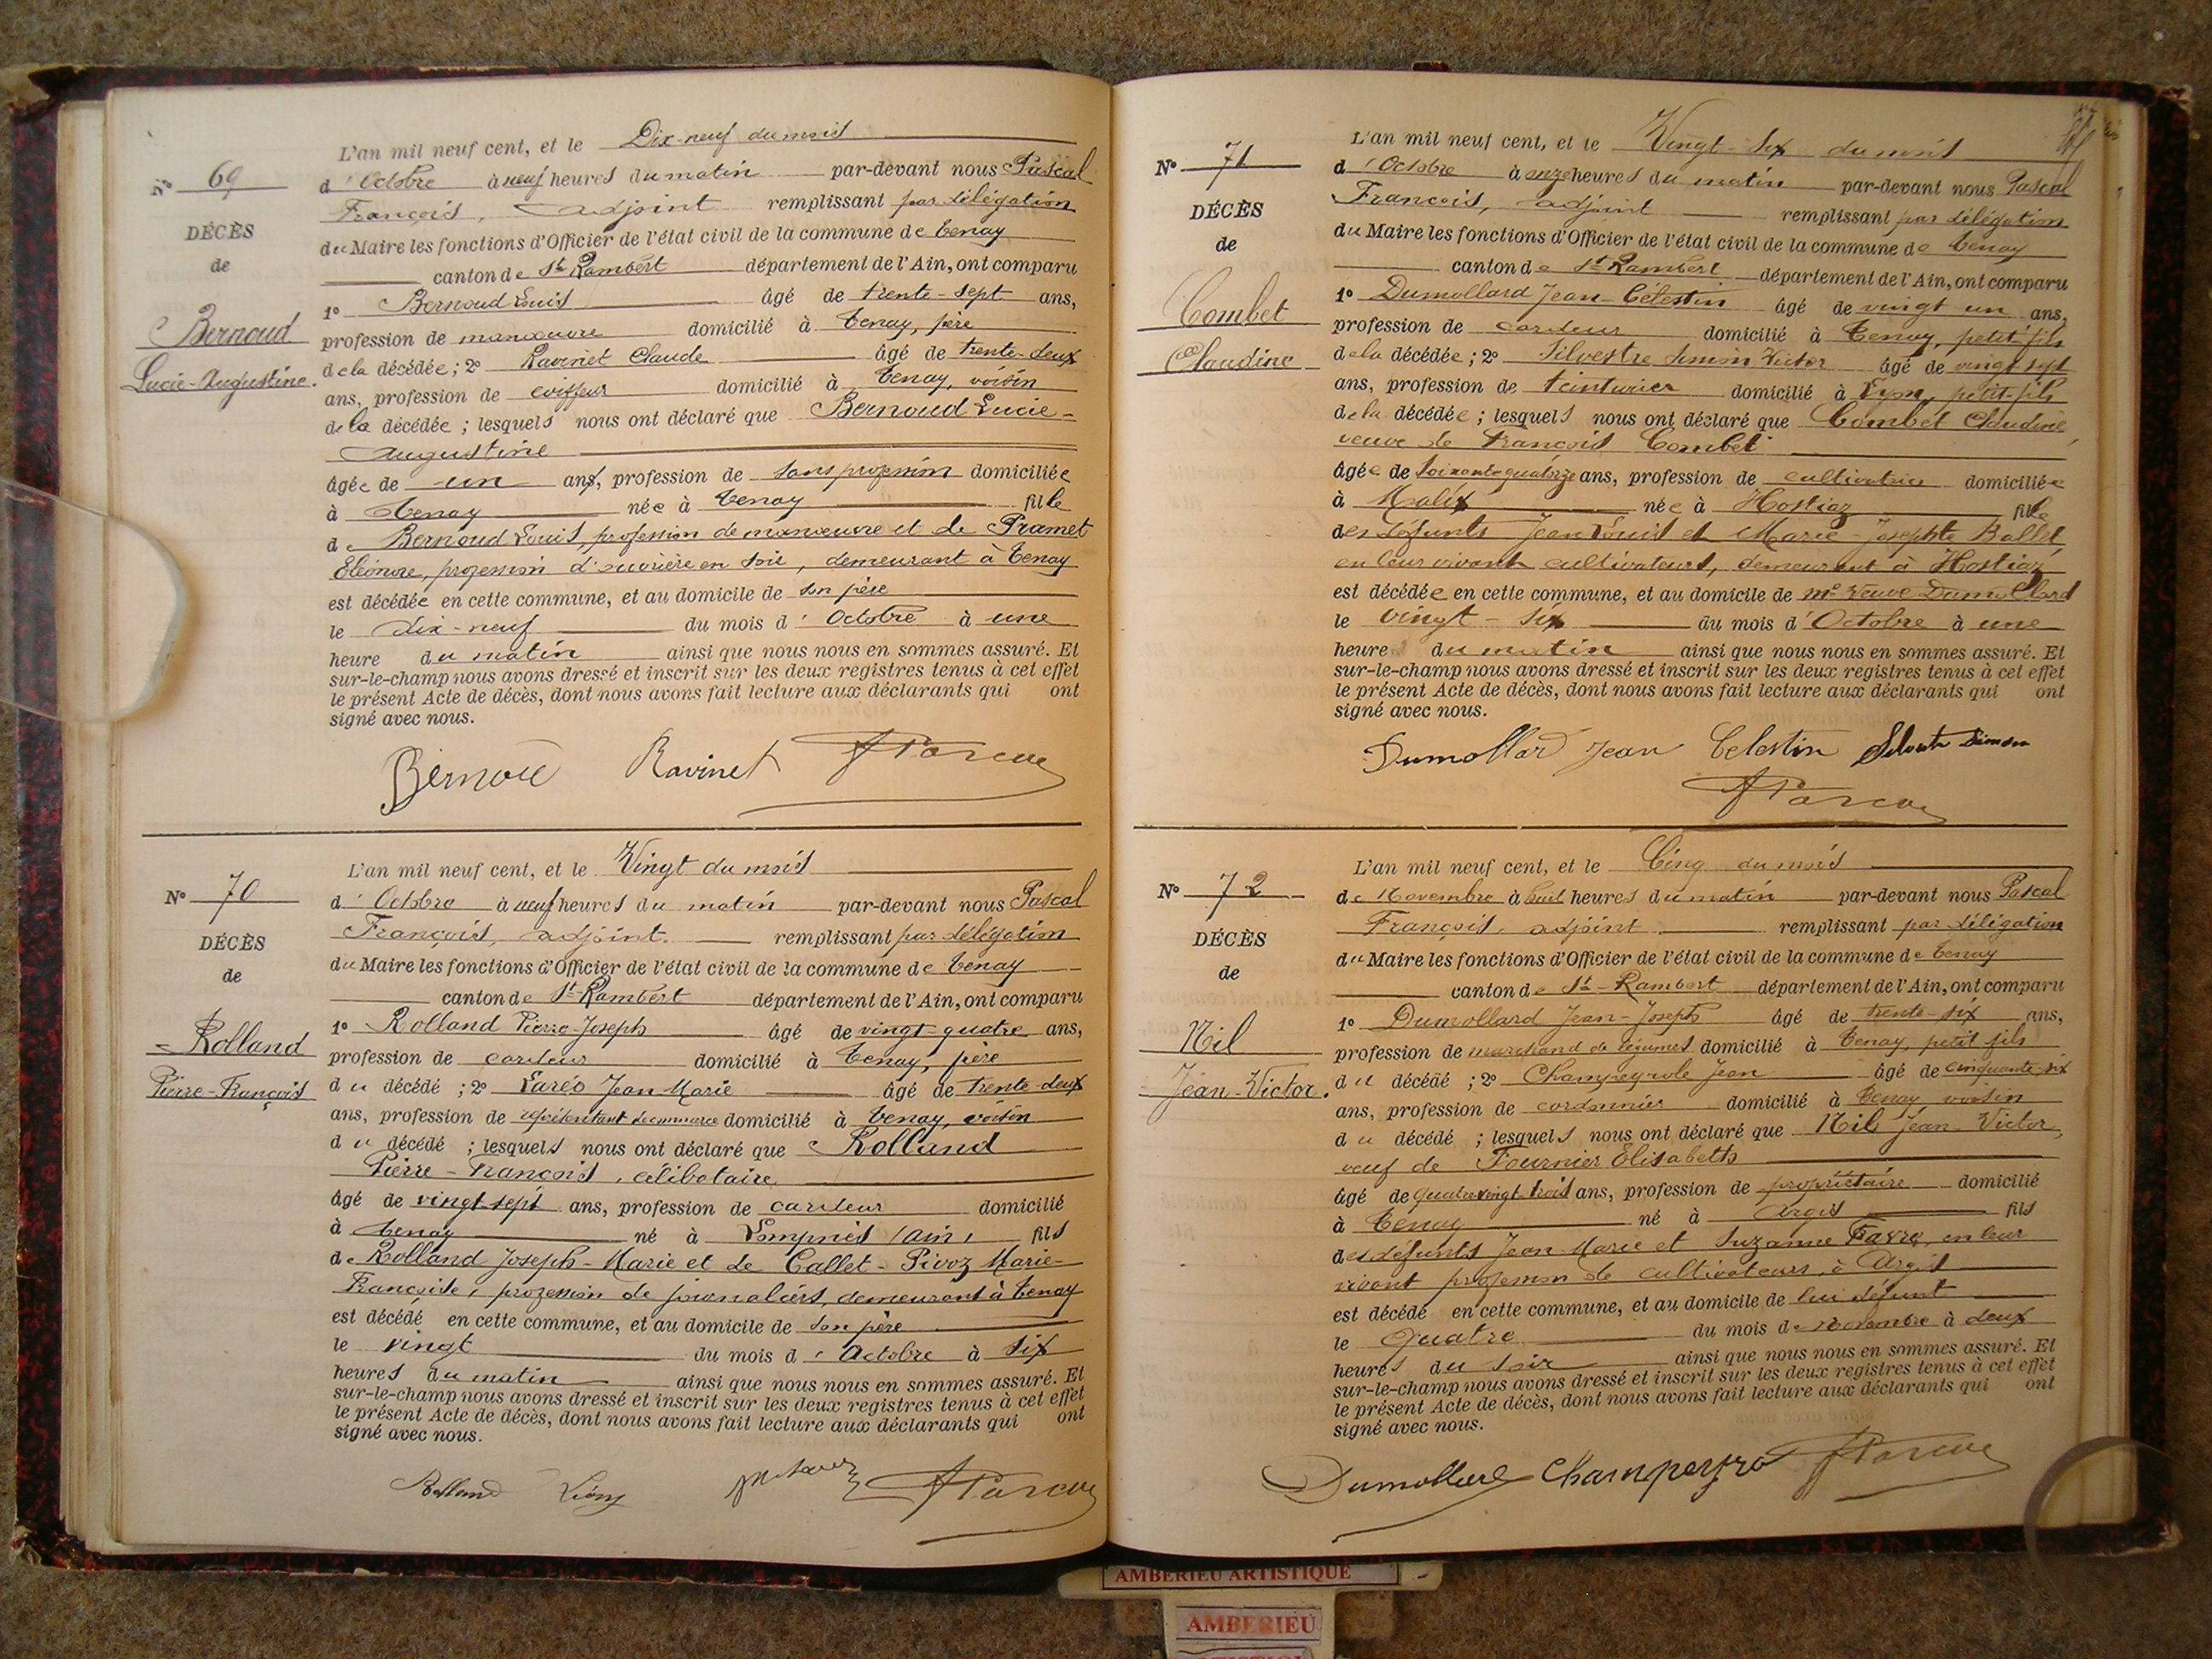 L'an mil neuf cent, et le Dix-neuf du mois
N° 69
d'Octobre à neuf heures du matin par-devant nous Pascal
François, adjoint remplissant par délégation
DÉCÈS
du Maire les fonctions d'Officier de l'état civil de la commune de Tenay
de
canton de St Rambert département de l'Ain, ont comparu
1° Bernoud Louis âgé de trente-sept ans,
Bernoud
profession de manœuvre domicilié à Tenay, père
Lucie-Augustine.
de la décédée ; 2° Ravinet Claude âgé de trente-deux
ans, profession de coiffeur domicilié à Tenay, voisin
de la décédée ; lesquels nous ont déclaré que Bernoud Lucie-
Augustine
âgée de un ans, profession de sans profession domiciliée
à Tenay née à Tenay fille
de Bernoud Louis, profession de manœuvre et de Pramet
Eléonore, profession d'ouvrière en soie, demeurant à Tenay
est décédée en cette commune, et au domicile de son père
le dix-neuf du mois d'Octobre à une
heure du matin ainsi que nous nous en sommes assuré. Et
sur-le-champ nous avons dressé et inscrit sur les deux registres tenus à cet effet
le présent Acte de décès, dont nous avons fait lecture aux déclarants qui ont
signé avec nous.
Ravinet
L'an mil neuf cent, et le Vingt du mois
N° 70
d'Octobre à neuf heures du matin par-devant nous Pascal
François, adjoint. remplissant par délégation
DÉCÈS
du Maire les fonctions d'Officier de l'état civil de la commune de Tenay
de
canton de St-Rambert département de l'Ain, ont comparu
1° Rolland Pierre-Joseph âgé de vingt-quatre ans,
Rolland
profession de cardeur domicilié à Tenay, père
Pierre-François
du décédé ; 2° Jean Marie âgé de trente-deux
ans, profession de représentant de commerce domicilié à Tenay, voisin
du décédé ; lesquels nous ont déclaré que Rolland
Pierre-François, célibataire
âgé de vingt-sept ans, profession de cardeur domicilié
à Tenay né à Lompnès (Ain) fils
de Rolland Joseph-Marie et de Callet-Pivoz Marie-
Françoise, profession de journaliers, demeurant à Tenay
est décédé en cette commune, et au domicile de son père
le vingt du mois d'Octobre à six
heures du matin ainsi que nous nous en sommes assuré. Et
sur-le-champ nous avons dressé et inscrit sur les deux registres tenus à cet effet
le présent Acte de décès, dont nous avons fait lecture aux déclarants qui ont
signé avec nous.
Rolland
L'an mil neuf cent, et le Vingt-six du mois
N° 71
d'Octobre à onze heures du matin par-devant nous Pascal
François, adjoint remplissant par délégation
DÉCÈS
du Maire les fonctions d'Officier de l'état civil de la commune de Tenay
de
canton de St-Rambert département de l'Ain, ont comparu
1° Dumollard Jean-Célestin âgé de vingt un ans,
Combet
profession de cardeur domicilié à Tenay, petit-fils
Claudine
de la décédée ; 2° Silvestre Simon Victor âgé de vingt sept
ans, profession de teinturier domicilié à Lyon, petit-fils
de la décédée ; lesquels nous ont déclaré que Combet Claudine,
veuve de François Combet
âgée de soixante quatorze ans, profession de cultivatrice domiciliée
à Malix née à Hostiaz fille
des défunts Jean Louis et Marie-Josephte Ballet
en leur vivant cultivateurs, demeurant à Hostiaz
est décédée en cette commune, et au domicile de Me Veuve Dumollard
le vingt-six du mois d'Octobre à une
heure du matin ainsi que nous nous en sommes assuré. Et
sur-le-champ nous avons dressé et inscrit sur les deux registres tenus à cet effet
le présent Acte de décès, dont nous avons fait lecture aux déclarants qui ont
signé avec nous.
Dumollard Jean Celestin
L'an mil neuf cent, et le Cinq du mois
N° 72
de Novembre à huit heures du matin par-devant nous Pascal
François, adjoint remplissant par délégation
DÉCÈS
du Maire les fonctions d'Officier de l'état civil de la commune de Tenay
de
canton de St-Rambert département de l'Ain, ont comparu
1° Dumollard Jean-Joseph âgé de trente-six ans,
Nil
profession de marchand de légumes domicilié à Tenay, petit fils
Jean-Victor.
du décédé ; 2° Champeyrole Jean âgé de cinquante-six
ans, profession de cordonnier domicilié à Tenay voisin
du décédé ; lesquels nous ont déclaré que Nil Jean-Victor,
veuf de Fournier Elisabeth
âgé de quatre vingt-trois ans, profession de propriétaire domicilié
à Tenay né à Argis fils
des défunts Jean-Marie et Suzanne Favre, en leur
vivant profession de cultivateurs, à Argis
est décédé en cette commune, et au domicile de lui défunt
le Quatre du mois de Novembre à deux
heures du soir ainsi que nous nous en sommes assuré. Et
sur-le-champ nous avons dressé et inscrit sur les deux registres tenus à cet effet
le présent Acte de décès, dont nous avons fait lecture aux déclarants qui ont
signé avec nous.
AMBERIEU ARTISTIQUE
AMBERIEU